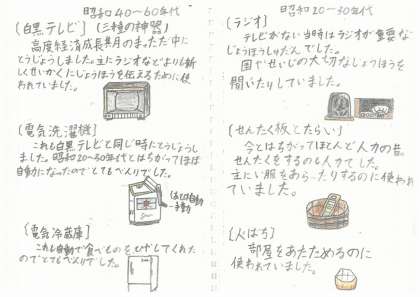 昭和40~60年代
(白黒テレビ)(三種の神器)
高度経済成長期のまっただ中に
とうじょうしました。主にラジオなどより詳
しくせいかくにじょうほうを伝えるために使
われていました。
(電気洗濯機)
これも白黒テレビと同じ時にとうじょうし
ました。昭和20~30年代とはちがってほぼ
自動になったのでとてもべんりでした。
(ほぼ自動
手動)
(電気冷蔵庫)
これも自動で食べものをひやしてくれた
のでとてもべんりでした。
昭和20~30年代
(ラジオ)
テレビがない当時はラジオが重要な
じょうほうしゅだんでした。
国やせいじの大切なじょうほうを
聞いたりしていました。
(せんたく板とたらい)
今とはちがってほとんど人力の昔。
せんたくをするのも人力でした。
主にい服をあらったりするのに使われ
ていました。
(火ばち)
部屋をあたためるのに
使われていました。